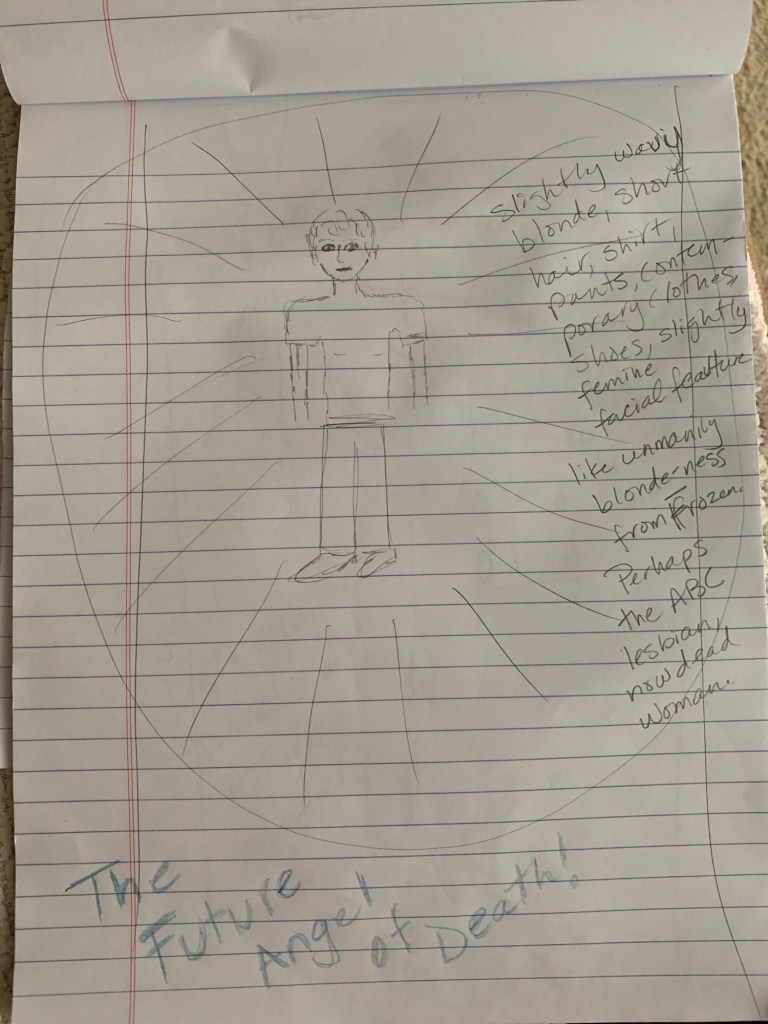 slightly wavy
blonde, short
hair, shirt,
pants, contem-
porary clothes,
shoes, slightly
femine
facial feature
like unmanily
blonde-ness
from Frozen.
Perhaps
the ABC
lesbian,
now dead
woman.
The
Future
Angel
of Death!